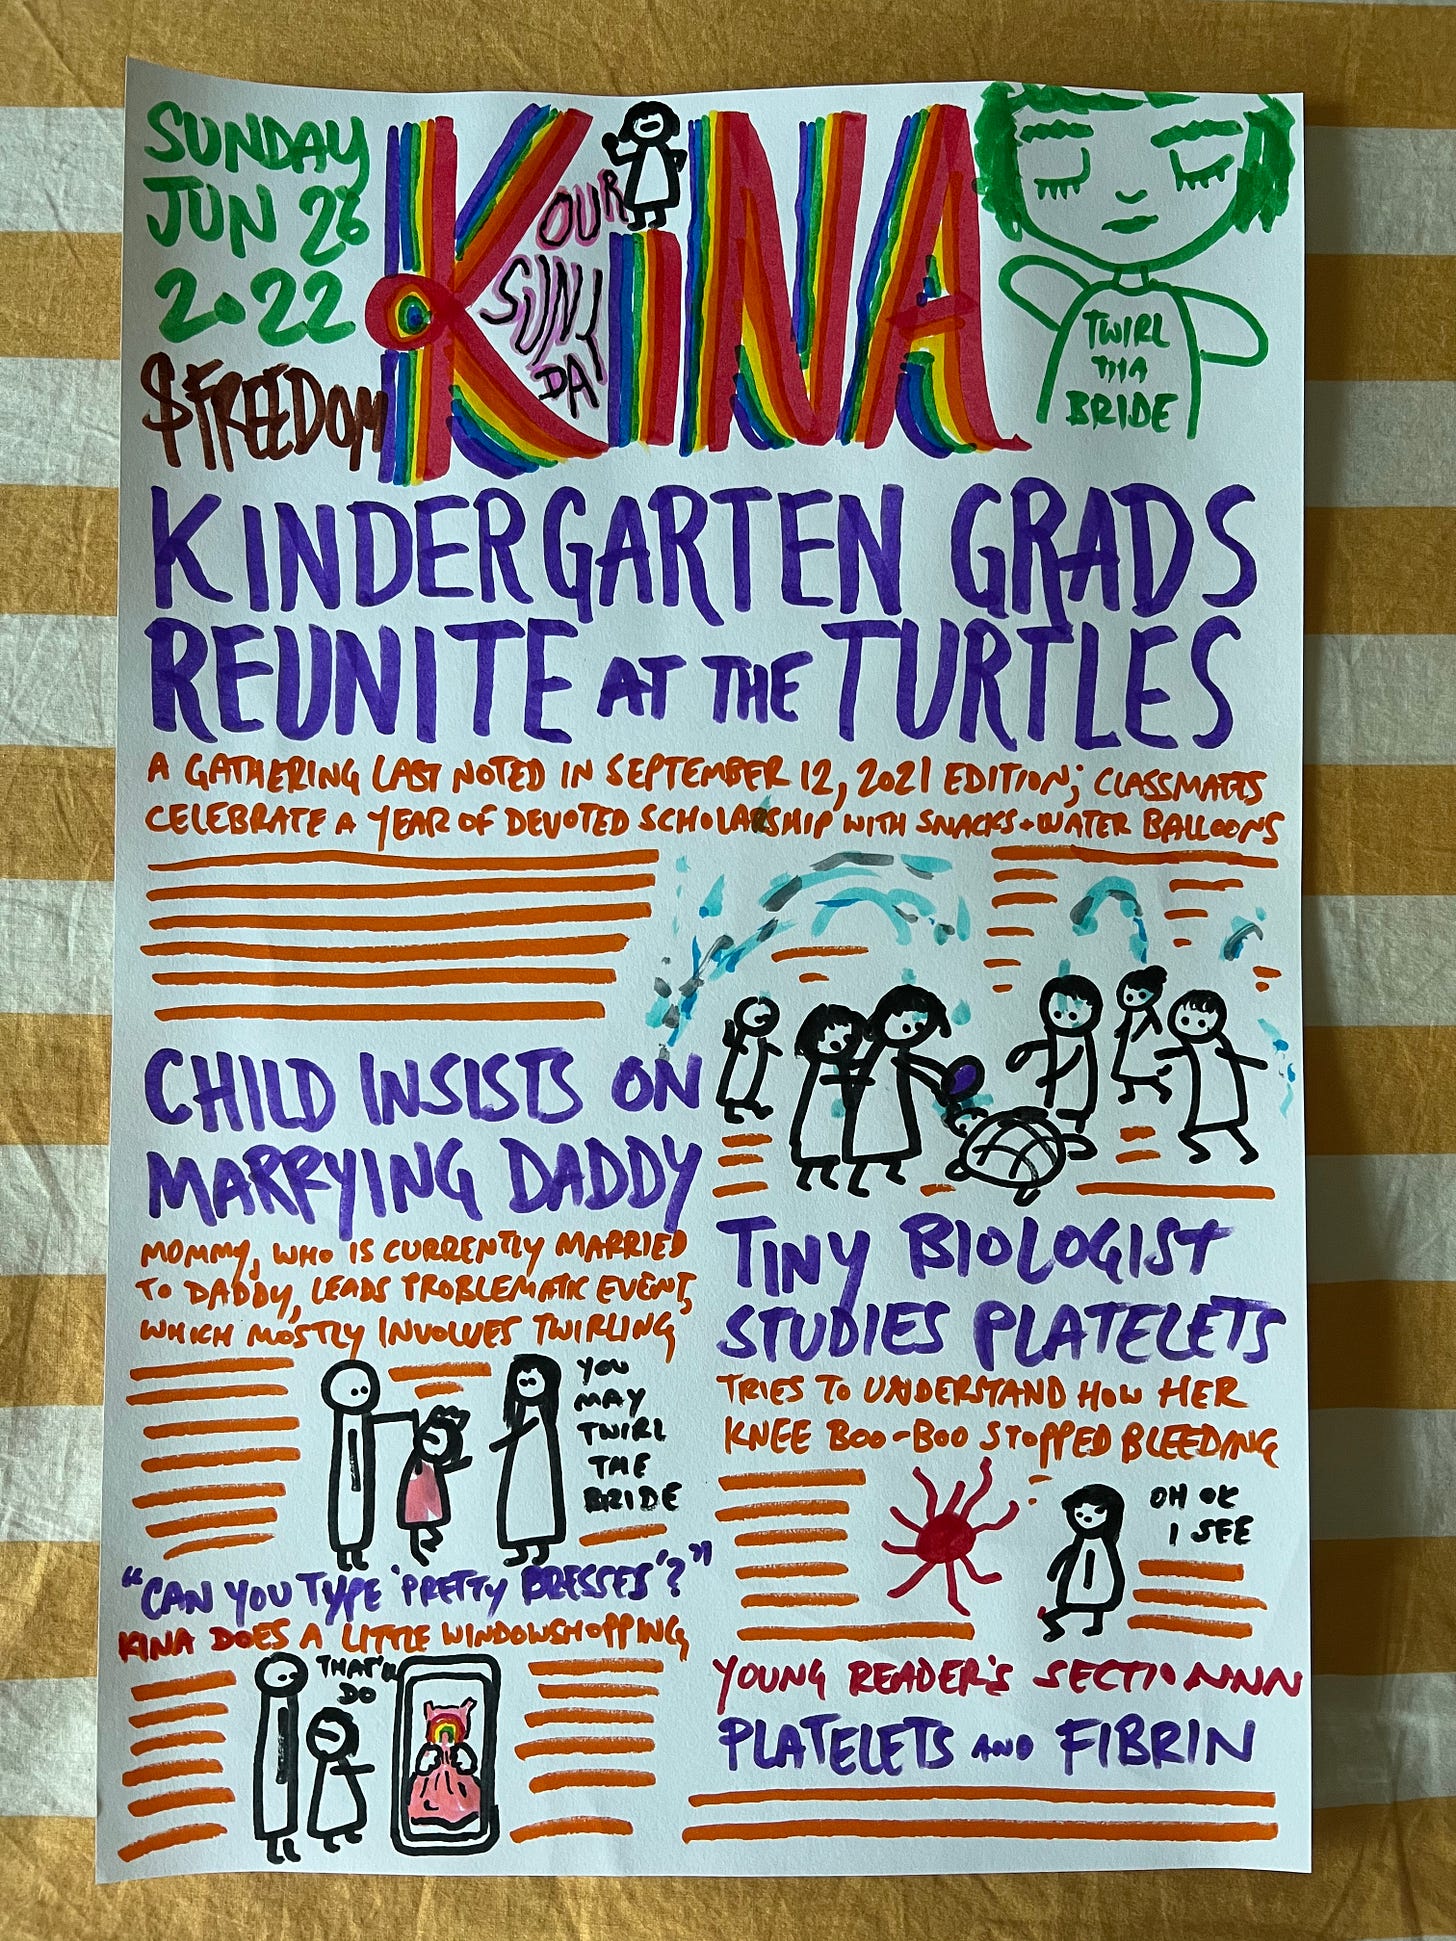 SUNDAY
JUN 26
2022
$FREEDOM
KiNA
OUR
SUNY
DA
TWIRL
THA
BRIDE
KINDERGARTEN GRADS
REUNITE AT THE TURTLES
A GATHERING LAST NOTED IN SEPTEMBER 12, 2021 EDITION; CLASSMATES
CELEBRATE A YEAR OF DEVOTED SCHOLARSHIP WITH SNACKS + WATER BALLOONS
CHILD INSISTS ON
MARRYING DADDY
MOMMY, WHO IS CURRENTLY MARRIED
TO DADDY, LEADS PROBLEMATIC EVENT,
WHICH MOSTLY INVOLVES TWIRLING
YOU
MAY
TWIRL
THE
BRIDE
"CAN YOU TYPE 'PRETTY DRESSES'?"
KINA DOES A LITTLE WINDOWSHOPPING
THAT'LL
DO
TINY BIOLOGIST
STUDIES PLATELETS
TRIES TO UNDERSTAND HOW HER
KNEE BOO-BOO STOPPED BLEEDING
OH OK
I SEE
YOUNG READER'S SECTIONNNN
PLATELETS AND FIBRIN